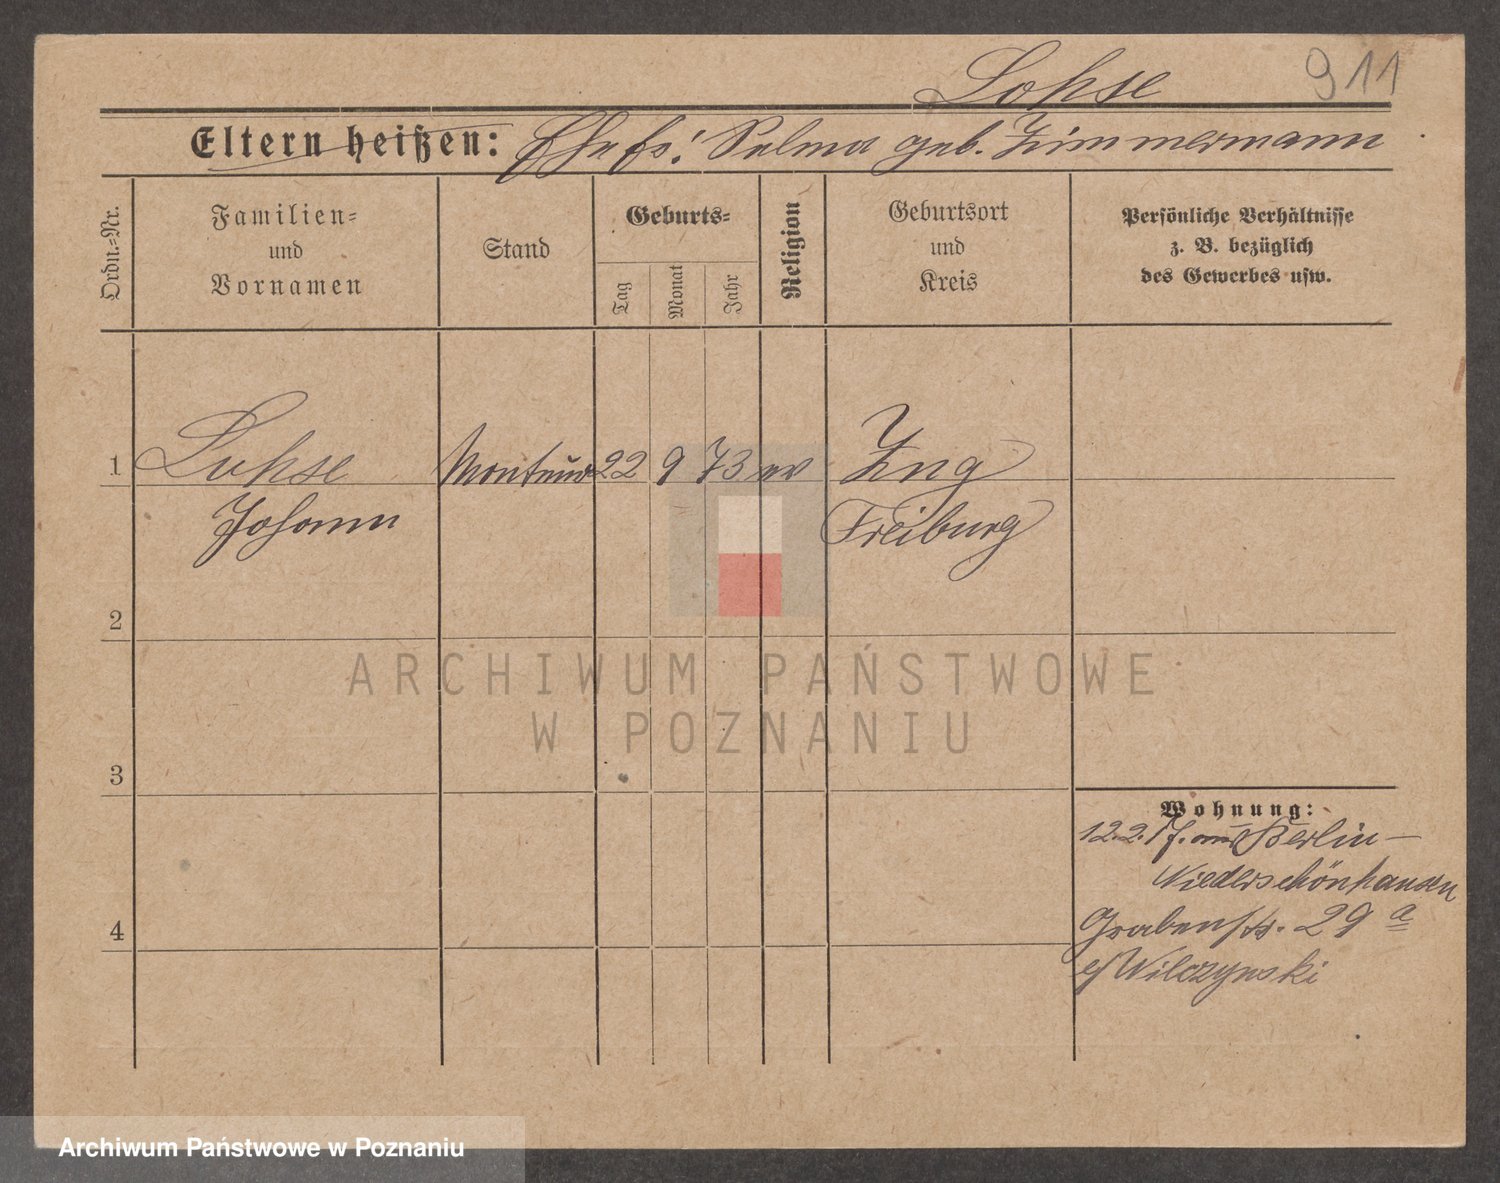 Lohse 911
Eltern heißen: Ehefr: Selma geb. Zimmermann
Ordn.-Nr.
Familien-
und
Vornamen
Stand
Geburts-
Tag
Monat
Jahr
Religion
Geburtsort
und
Kreis
Persönliche Verhältnisse
z. B. bezüglich
des Gewerbes usw.
1 Lohse Monteur 22 9 73 ev Zug
Johann Freiburg
2
ARCHIWUM PAŃSTWOWE
W POZNANIU
3
Wohnung:
12.2.17. aus Berlin-
Niederschönhausen
4 Grabenstr. 29 a
Wilczynski
Archiwum Państwowe w Poznaniu